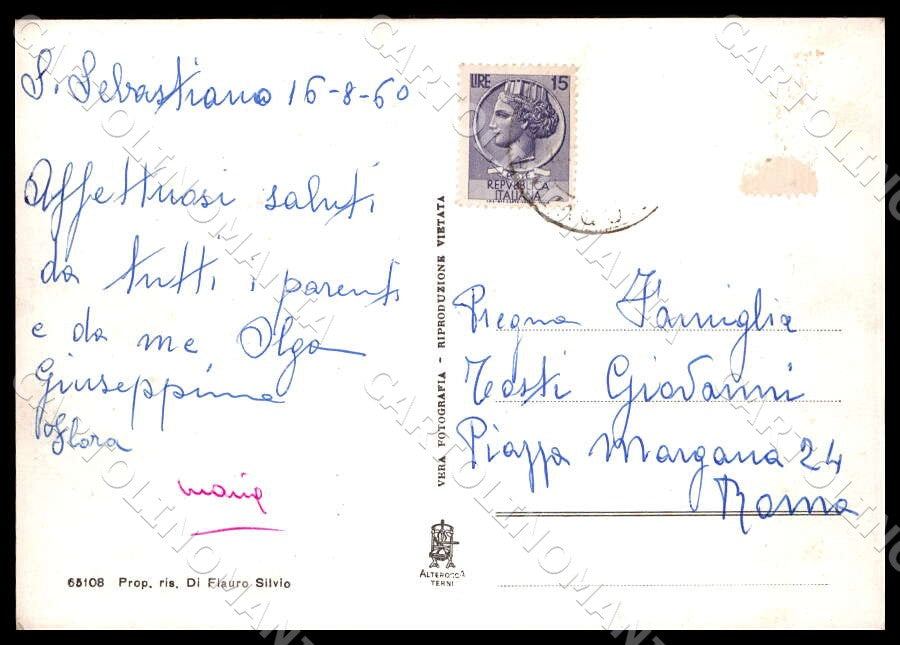 S. Sebastiano 16-8-60
Affettuosi saluti
da tutti i parenti
e da me Olga
Giuseppina
Flora
maria
65108 Prop. ris. Di Flauro Silvio
VERA FOTOGRAFIA - RIPRODUZIONE VIETATA
ALTEROCCA
TERNI
LIRE 15
REPVBBLICA
ITALIANA
Pregna Famiglia
Tosti Giovanni
Piazza Margana 24
Roma
CARTOLINOMANIA